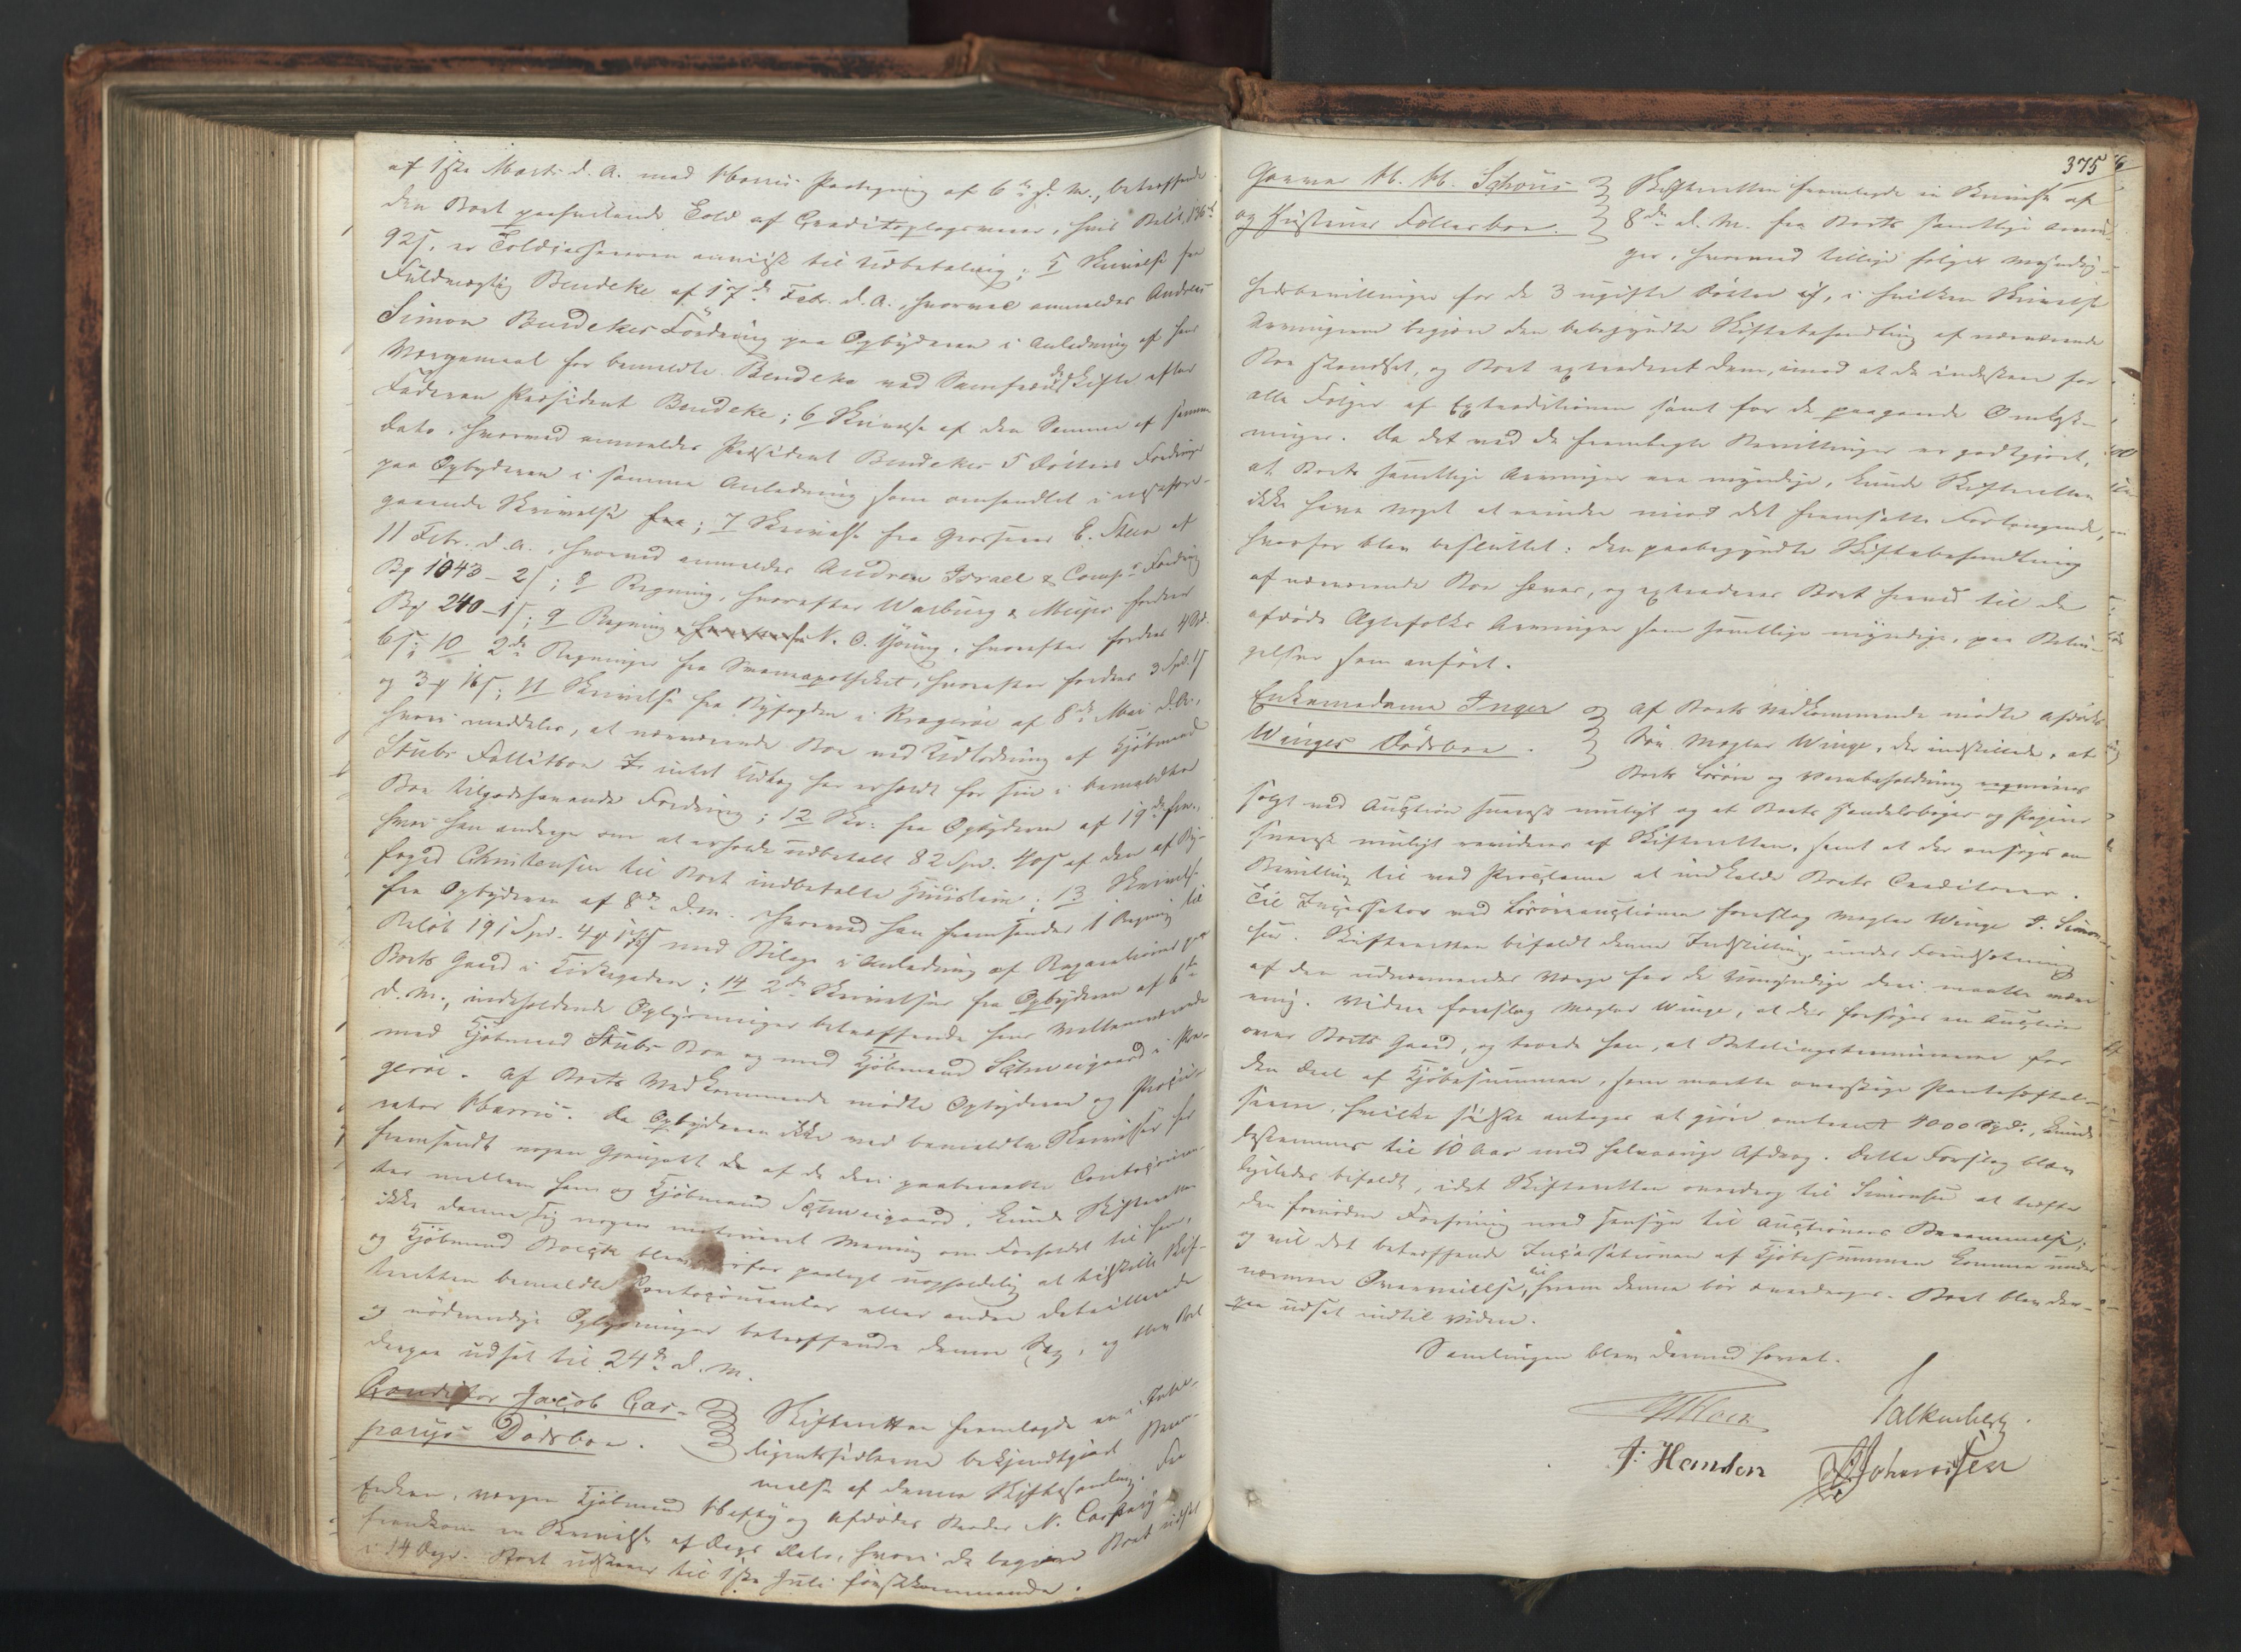 af 1ste Marts d. A. med Harris Paategning af 6te d. M., betræffende
den Boet paahvilende Told af Creditoplagsvarer, hvis Beløb,
92 s, er Toldcassereren anviist til Udbetaling; 5 Skrivelse fra
Fuldmægtig Bendeke af 17de Febr. d. A., hvorved anmeldes Andreas
Simon Bendekes Fordring paa Opbyderen i Anledning af hans
Værgemaal for bemeldte Bendeke ved Samfrændeskifte efter
Faderen Præsident Bendeke; 6 Skrivelse af den Samme af samme
Dato, hvorved anmeldes Præsident Bendekes 5 Døttres Fordringer
paa Opbyderen i samme Anledning som omhandlet i næstfore-
gaaende Skrivelse; 7 Skrivelse fra Grosserer C. af
11 Febr. d. A., hvorved anmeldes Andrew Israel & Comps Fordring
1043 - 2 s; 8 Regning, hvorefter Warburg & Meyer fordrer
240 - 1 s; 9 Regning fra N. O. Young, hvorefter fordres
6 s; 10 2de Regninger fra Svaneapotheket, hvorefter fordres 3 Spd. 1 s
og 3 16 s; 11 Skrivelse fra Byfogden i Kragerøe af 8de Mai d. A.,
hvori meddeles, at nærværende Boe ved Udlodning af Kjøbmand
Stubs Fallitboe intet Udlæg har erholdt for sin i bemeldte
Boe tilgodehavende Fordring; 12 Skr: fra Opbyderen af 19de
hvori han andrager om at erholde udbetalt 82 Spd. af den af By-
foged Christensen til Boet indbetalte Huusleie; 13 Skrivelse
fra Opbyderen af 8de d. M. hvorved han fremsender 1 Regning til
Beløb 191 Spd. 4 15 s med Bilage i Anledning af Reparationer paa
Boets Gaard i Kirkegaden; 14 2de Skrivelser fra Opbyderen af 6te
d. M., indeholdende Oplysninger betræffende hans Mellemværende
med Kjøbmand Stubs Boe og med Kjøbmand Schweigaard i Kra-
gerøe. Af Boets Vedkommende mødte Opbyderen og Procu-
rator Harris. Da Opbyderen ikke ved bemeldte Skrivelser har
fremsendt nogen Gjenpart af de deri paaberaabte Contocouran-
ter mellem ham og Kjøbmand Schweigaard, kunde Skifteretten
ikke danne sig nogen motiveret Mening om Forholdet til ham,
og Kjøbmand Boeck blev derfor paalagt uopholdelig at tilstille Skif-
teretten bemeldte Contocouranter eller anden detaillerede
og nødvendige Oplysninger betræffende denne Sag, og blev Boet
derpaa udsat til 24de d. M.
Conditor Jacob Cas-
parys Dødsboe.
Skifteretten fremlagde en i Intel-
ligentssedlerne bekjendtgjort Beram-
melse af denne Skiftesamling. Fra
Enken, Værgen Kjøbmand Heftye og Afdødes Broder N. Caspary
fremkom en Skrivelse af Dags Dato, hvori de begjære Boet udsat
i 14 Dage. Boet udsattes til 1ste Juli førstkommende.
375
Garver H. H. Schous
og Hustrues Fællesboe.
Skifteretten fremlagde en Skrivelse af
8de d. M. fra Boets samtlige Arvin-
ger, hvormed tillige følger Myndig-
hedsbevillinger for de 3 ugifte Døttre af, i hvilken Skrivelse
Arvingerne begjære den bebegyndte Skiftebehandling af nærværende
Boe standset, og Boet extraderet dem, imod at de indestaae for
alle Følger af Extraditionen samt for de paagaaende Omkost-
ninger. Da det ved de fremlagte Bevillinger er godtgjort,
at Boets samtlige Arvinger ere myndige, kunde Skifteretten
ikke have Noget at erindre imod det fremsatte Forlangende,
hvorfor blev besluttet: den paabegyndte Skiftebehandling
af nærværende Boe hæves, og extraderes Boet herved til de
afdøde Ægtefolks Arvinger som samtlige myndige, paa Betin-
gelser som anført.
Enkemadame Inger
Winges Dødsboe.
Af Boets Vedkommende mødte Afdødes
Søn Mægler Winge, der indstillede, at
Boets Løsøre og Varebeholdning
solgt ved Auction snarest muligt og at Boets Handelsbøger og Papirer
snarest muligt revideres af Skifteretten, samt at der ansøges om
Bevilling til ved Proclama at indkalde Boets Creditorer.
Til Incassator ved Løsøreauctionen foreslog Mægler Winge J. Simon-
sen. Skifteretten bifaldt denne Indstilling under Forudsætning
af den udnævnendes Værge for de Umyndige deri maatte være
enig. Videre foreslog Mægler Winge, at der forsøges en Auction
over Boets Gaard, og troede han, at Betalingsterminerne for
den Deel af Kjøbesummen, som maatte overstige Pantehæftel-
serne, hvilke sidste antages at gjøre omtrent 4000 Spd., kunde
bestemmes til 10 Aar med halvaarige Afdrag. Dette Forslag blev
ligeledes bifaldt, idet Skifteretten overdrog til Simonsen at træffe
den fornødne Forføining med Hensyn til Auctionens Berammelse;
og vil det betræffende Incassationen af Kjøbesummen komme under
nærmere Overveielse, til hvem denne bør overdrages. Boet blev der-
paa udsat indtil videre.
Samlingen blev dermed hævet.
Falkenberg.
J. Hansen
Johannesen